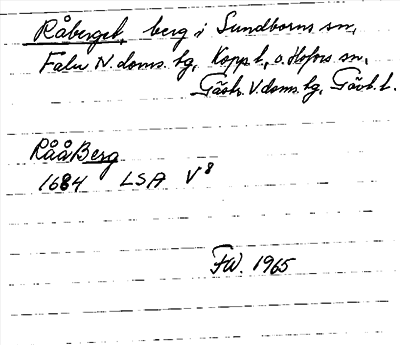 Råberget, berg i Sundborns sn,
Falu N. doms. tg, Kopp. l., o. Hofors sn,
Gästr. V. doms. tg, Gävl. l.
RååBerg
1684 LSA V8
FW. 1965